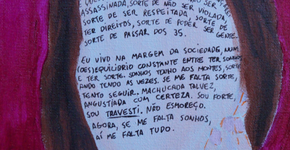 ASSASSINADA, SORTE DE NÃO SER
SORTE DE NÃO SER VIOLADA,
SORTE DE SER RESPEITADA. SORTE DE
TER DIREITOS, SORTE DE PODER SER GENTE.
SORTE DE PASSAR DOS 35.
EU VIVO NA MARGEM DA SOCIEDADE, NUM
(DES)EQUILÍBRIO CONSTANTE ENTRE TER SONHOS
E TER SORTE. SONHOS TENHO AOS MONTES, SORTE
ANDO TENDO ÀS VEZES. SE ME FALTA SORTE,
TENTO SEGUIR. MACHUCADA TALVEZ,
ANGUSTIADA COM CERTEZA. SOU FORTE,
SOU TRAVESTI. NÃO ESMOREÇO.
AGORA, SE ME FALTA SONHOS,
AÍ ME FALTA TUDO.